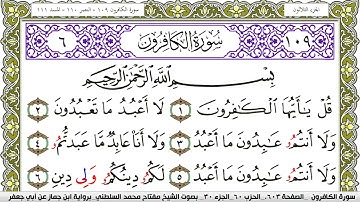 الجزء الثلاثون
سورة الكافرون ١٠٩ - النصر ١١٠ - المسد ١١١
١٠٩ سُورَةُ الكَافِرُونَ ٦
بِسْمِ اللَّهِ الرَّحْمَٰنِ الرَّحِيمِ
قُلْ يَٰٓأَيُّهَا ٱلْكَٰفِرُونَ ١ لَآ أَعْبُدُ مَا تَعْبُدُونَ ٢
وَلَآ أَنتُمُۥ عَٰبِدُونَ مَآ أَعْبُدُ ٣ وَلَآ أَنَا۠ عَابِدٞ مَّا عَبَدتُّمُۥ ٤
وَلَآ أَنتُمُۥ عَٰبِدُونَ مَآ أَعْبُدُ ٥ لَكُمُۥ دِينُكُمُۥ وَلِى دِينِ ٦
سورة الكافرون - الصفحة ٦٠٣ - الحزب ٦٠ - الجزء ٣٠ - بصوت الشيخ مفتاح محمد السلطني - برواية ابن جماز عن أبي جعفر